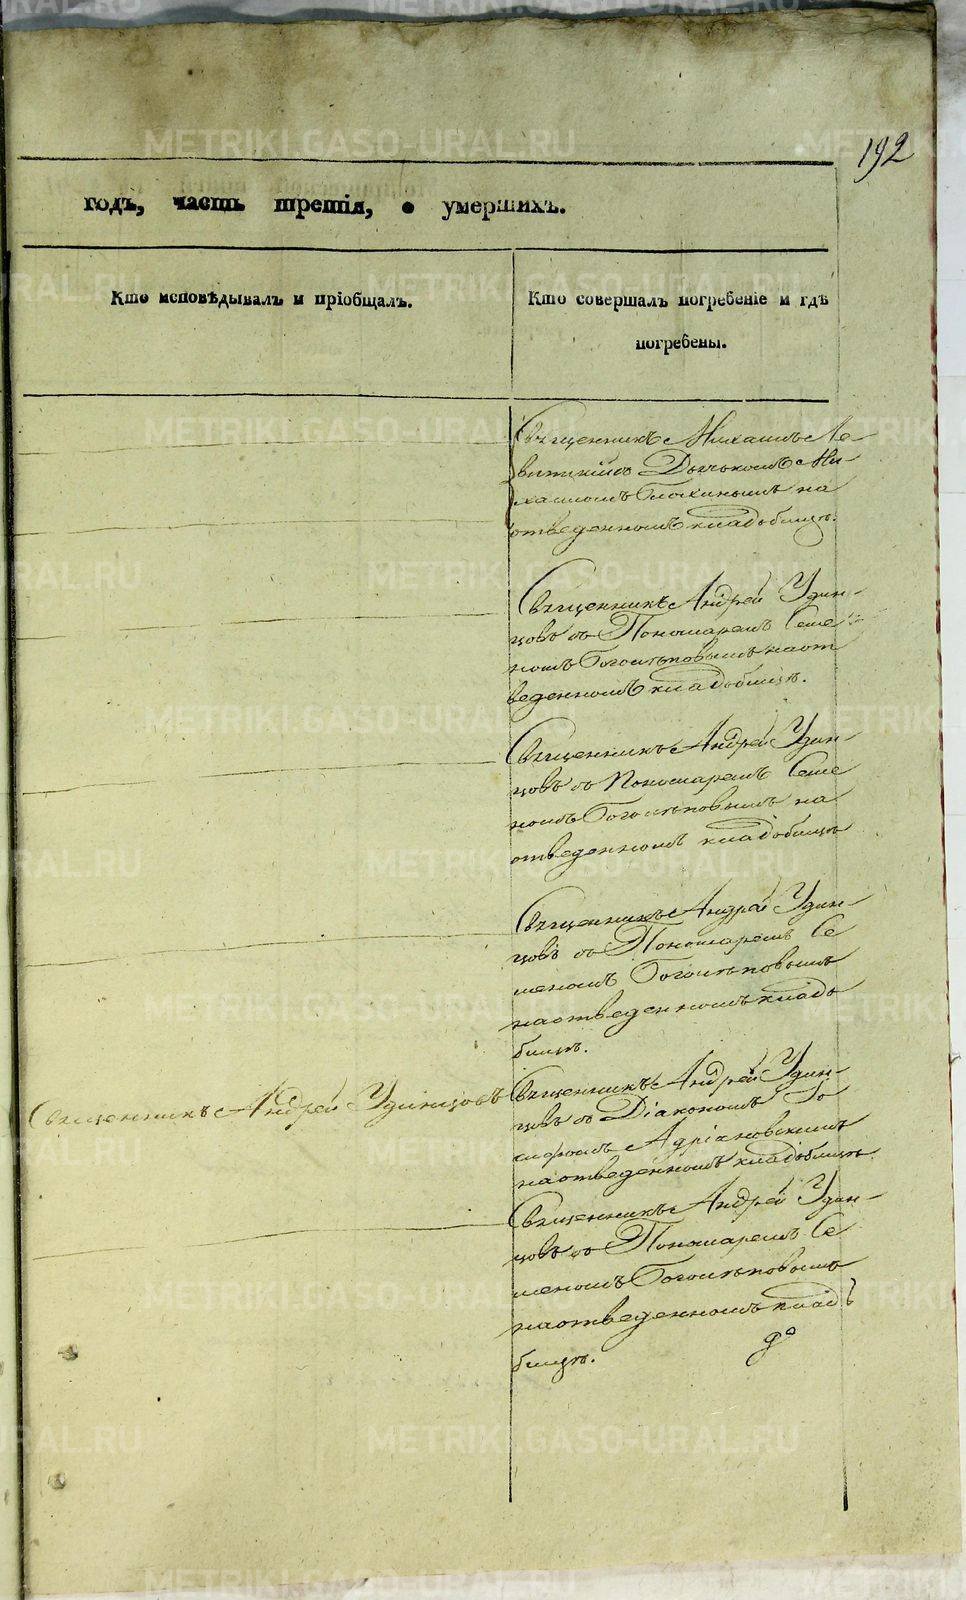 192
годъ, часть третія, о умершихъ.
Кто исповѣдывалъ и пріобщалъ.
Кто совершалъ погребеніе и гдѣ
погребены.
Священникъ Михаилъ Ле-
витскій съ Дьячкомъ Ми-
хаиломъ на
отведенномъ кладбищѣ.
Священникъ Андрей Удин-
цовъ съ Пономаремъ Семе
номъ Боголѣповымъ на от
веденномъ кладбищѣ.
Священникъ Андрей Удин-
цовъ съ Пономаремъ Семе
номъ Боголѣповымъ на
отведенномъ кладбищѣ
Священникъ Андрей Удин-
цовъ съ Пономаремъ Се
меномъ Боголѣповымъ
на отведенномъ клад
бищѣ.
Священникъ Андрей Удинцовъ
Священникъ Андрей Удин-
цовъ съ Діакономъ
Адріановскимъ
на отведенномъ кладбищѣ.
Священникъ Андрей Удин-
цовъ съ Пономаремъ Се
меномъ Боголѣповымъ
на отведенномъ клад
бищѣ.
METRIKI.GASO-URAL.RU